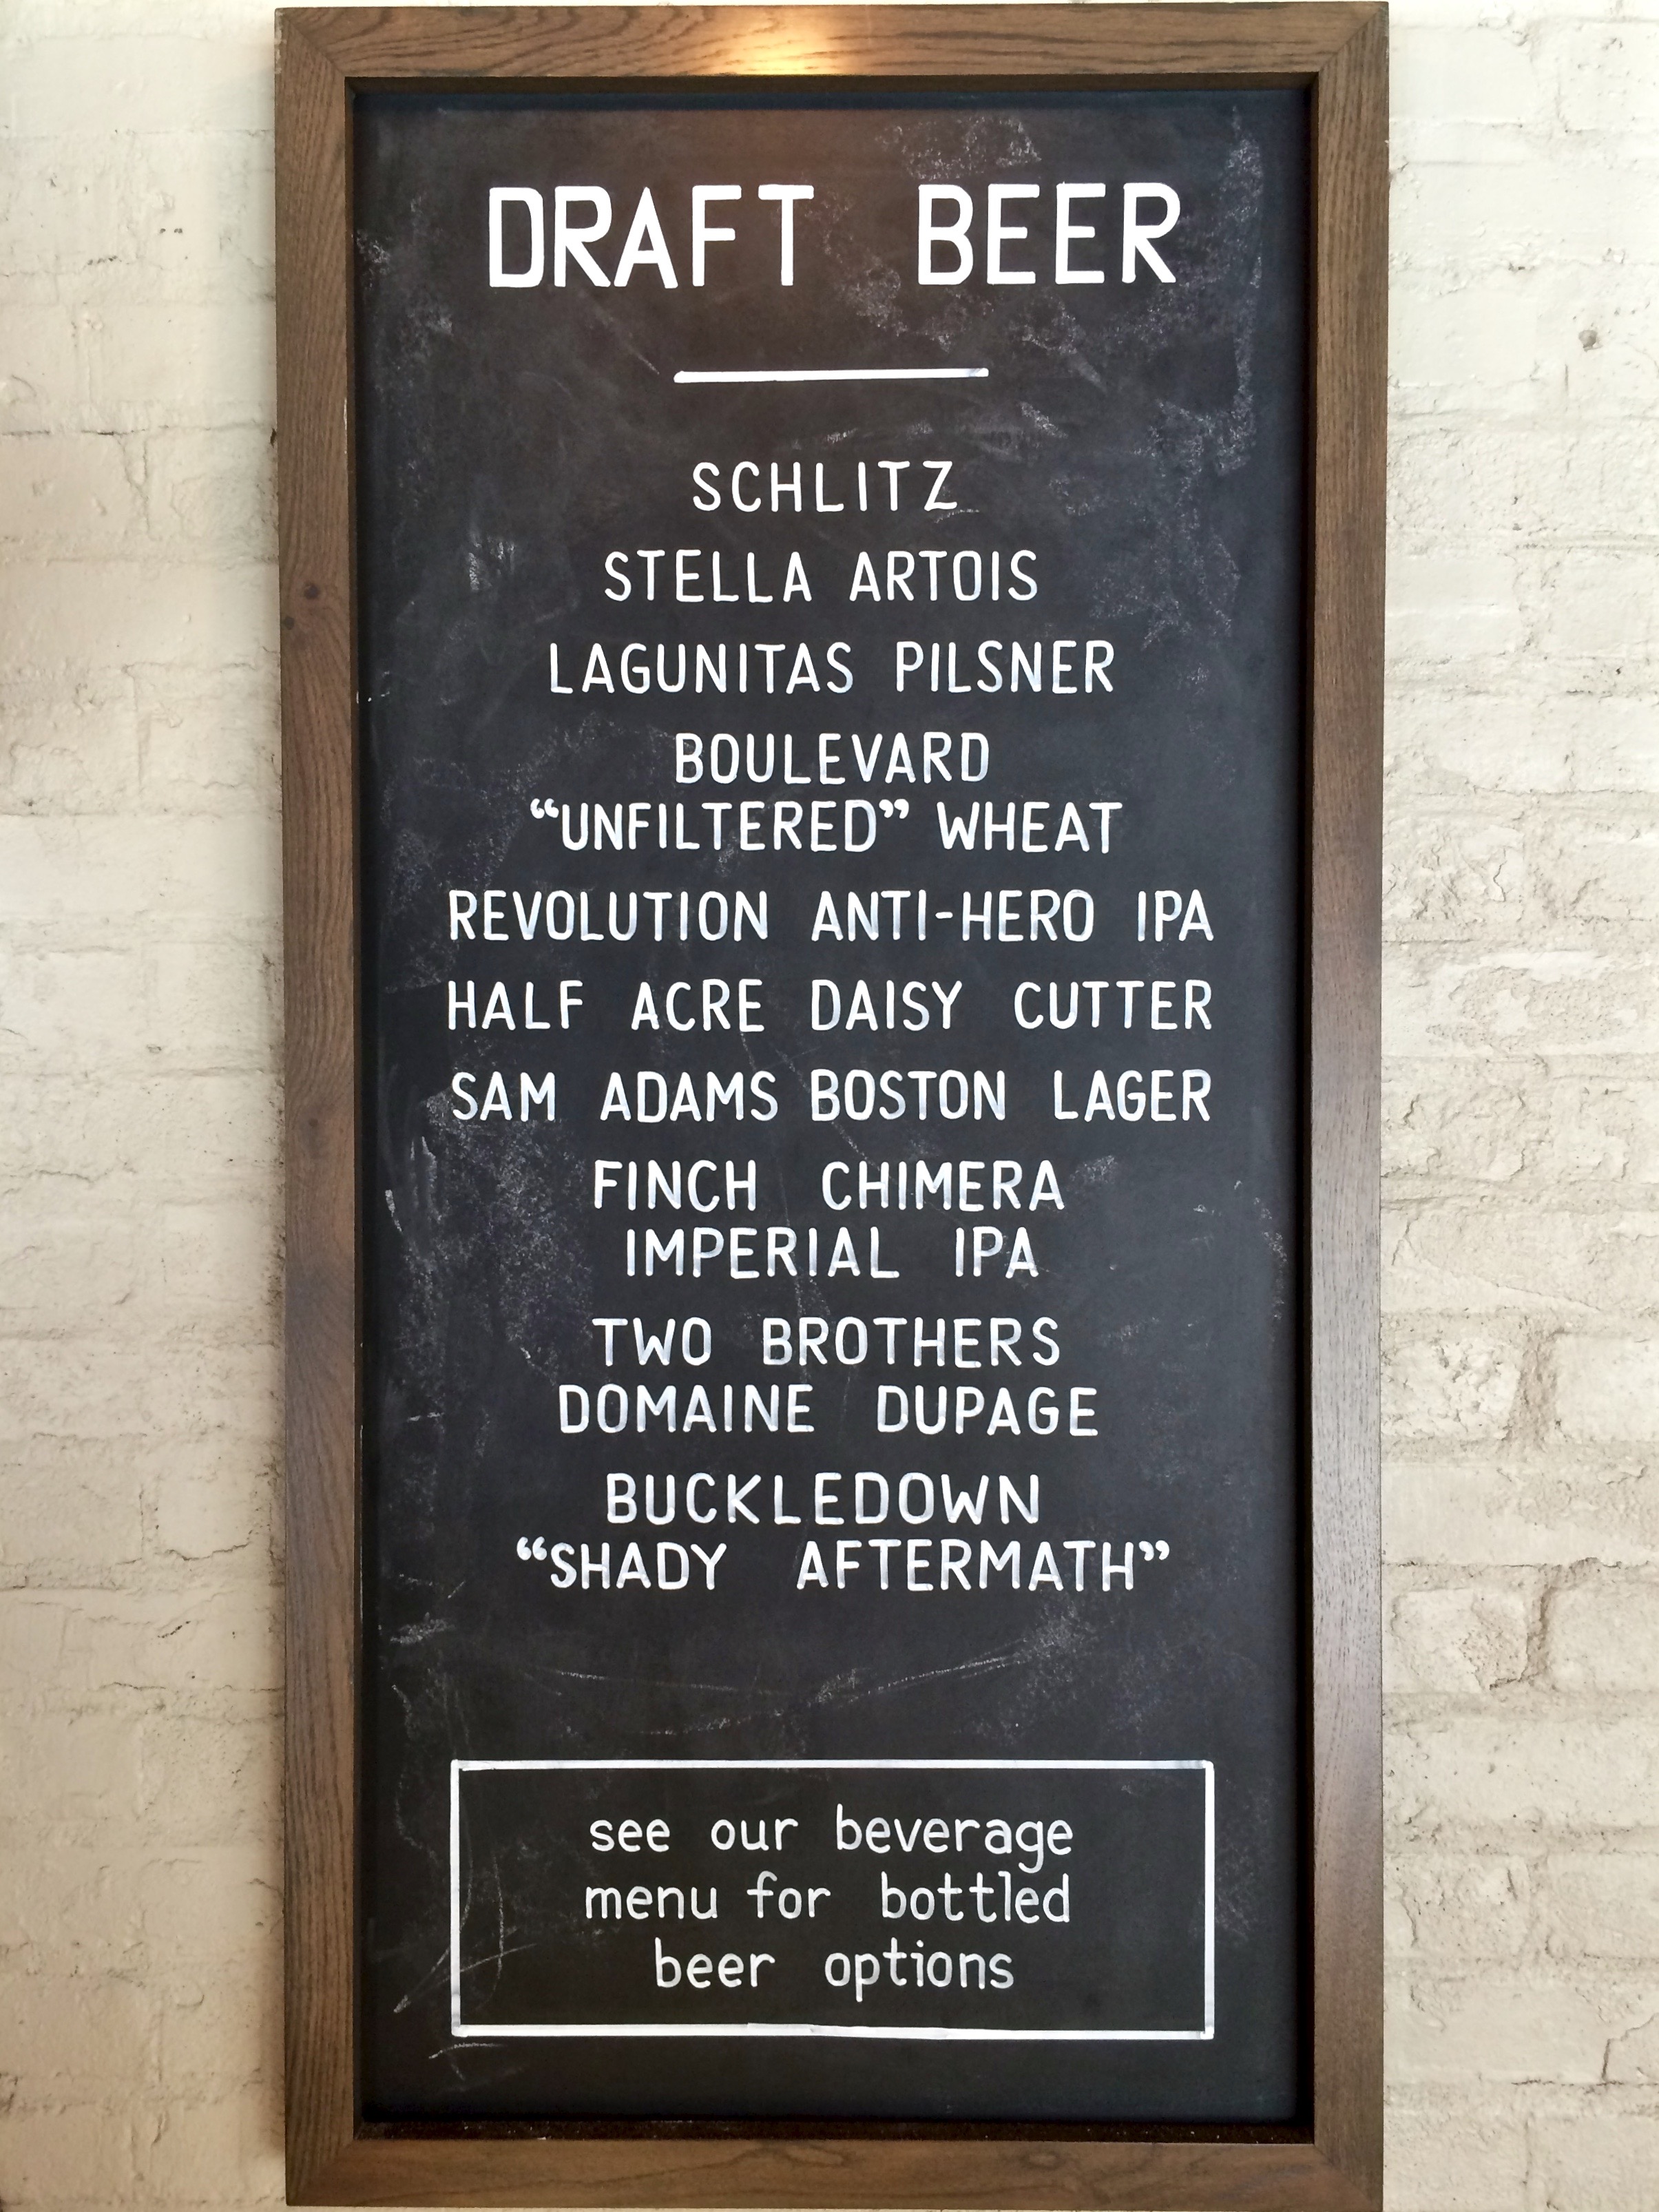 DRAFT BEER
SCHLITZ
STELLA ARTOIS
LAGUNITAS PILSNER
BOULEVARD
“UNFILTERED” WHEAT
REVOLUTION ANTI-HERO IPA
HALF ACRE DAISY CUTTER
SAM ADAMS BOSTON LAGER
FINCH CHIMERA
IMPERIAL IPA
TWO BROTHERS
DOMAINE DUPAGE
BUCKLEDOWN
“SHADY AFTERMATH”
see our beverage
menu for bottled
beer options